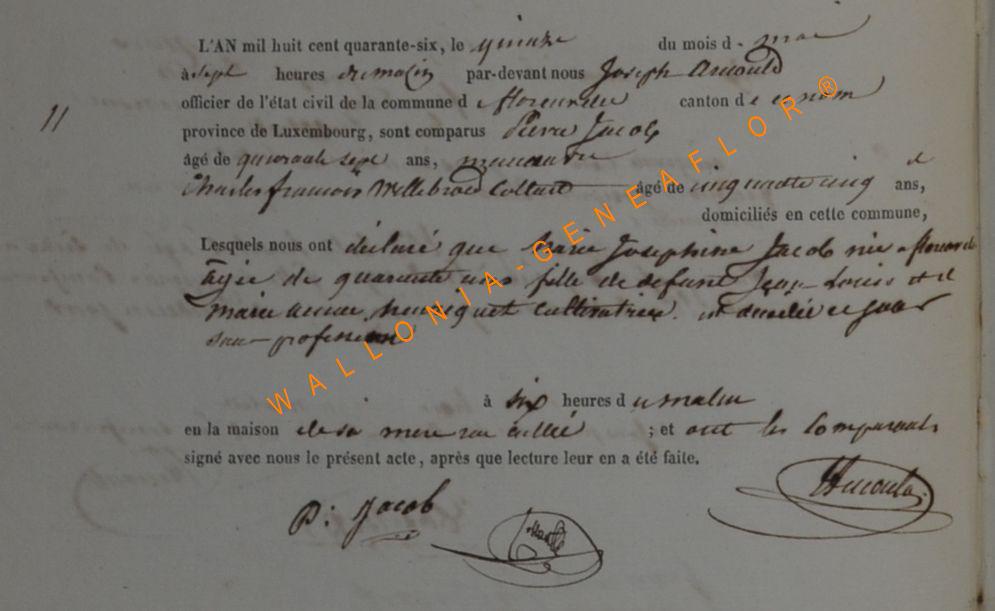 L'AN mil huit cent quarante-six, le quinze du mois d mai
à sept heures du matin par-devant nous Joseph Arnould
officier de l'état civil de la commune d florenville canton de nom
11
province de Luxembourg, sont comparus Pierre Jacob
âgé de quarante sept ans, menuisier et
Charles francois Willebrord Collard âgé de cinquante cinq ans,
domiciliés en cette commune,
Lesquels nous ont déclaré que Marie Josephine Jacob née a florenville
agée de quarante ans fille de defunt Jean Louis et de
marie anne henriquet cultivatrice est decedée ce jour
sans profession
à six heures du matin
en la maison de sa mere rue ; et ont les Comparants
signé avec nous le présent acte, après que lecture leur en a été faite.
P: Jacob Arnould
WALLONIA-GENEAFLOR®